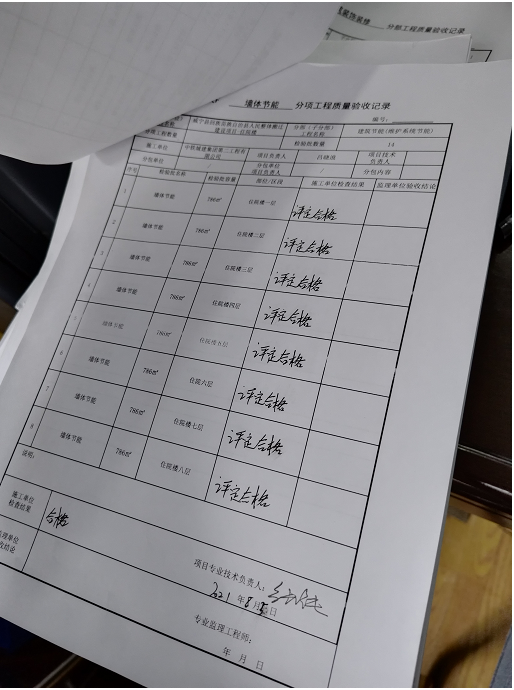 装饰装修 分部工程质量验收记录
墙体节能 分项工程质量验收记录
编号:
建设项目-住院楼 分部(子分部)工程名称 建筑节能(维护系统节能)
检验批数量 14
施工单位 中铁城建集团第二工程有限公司 项目负责人 项目技术负责人
分包单位 分包单位项目负责人 / 分包内容
序号 检验批名称 检验批容量 部位/区段 施工单位检查结果 监理单位验收结论
1 墙体节能 786㎡ 住院楼一层 评定合格
2 墙体节能 786㎡ 住院楼二层 评定合格
3 墙体节能 786㎡ 住院楼三层 评定合格
4 墙体节能 786㎡ 住院楼四层 评定合格
5 墙体节能 786㎡ 住院楼五层 评定合格
6 墙体节能 786㎡ 住院六层 评定合格
7 墙体节能 786㎡ 住院楼七层 评定合格
8 墙体节能 786㎡ 住院楼八层 评定合格
说明:
施工单位检查结果 合格
项目专业技术负责人:
2021 年 8 月 日
监理单位
收结论
专业监理工程师:
年 月 日